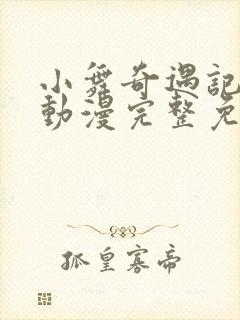 小舞奇遇記
動漫完整免
孤皇寡帝